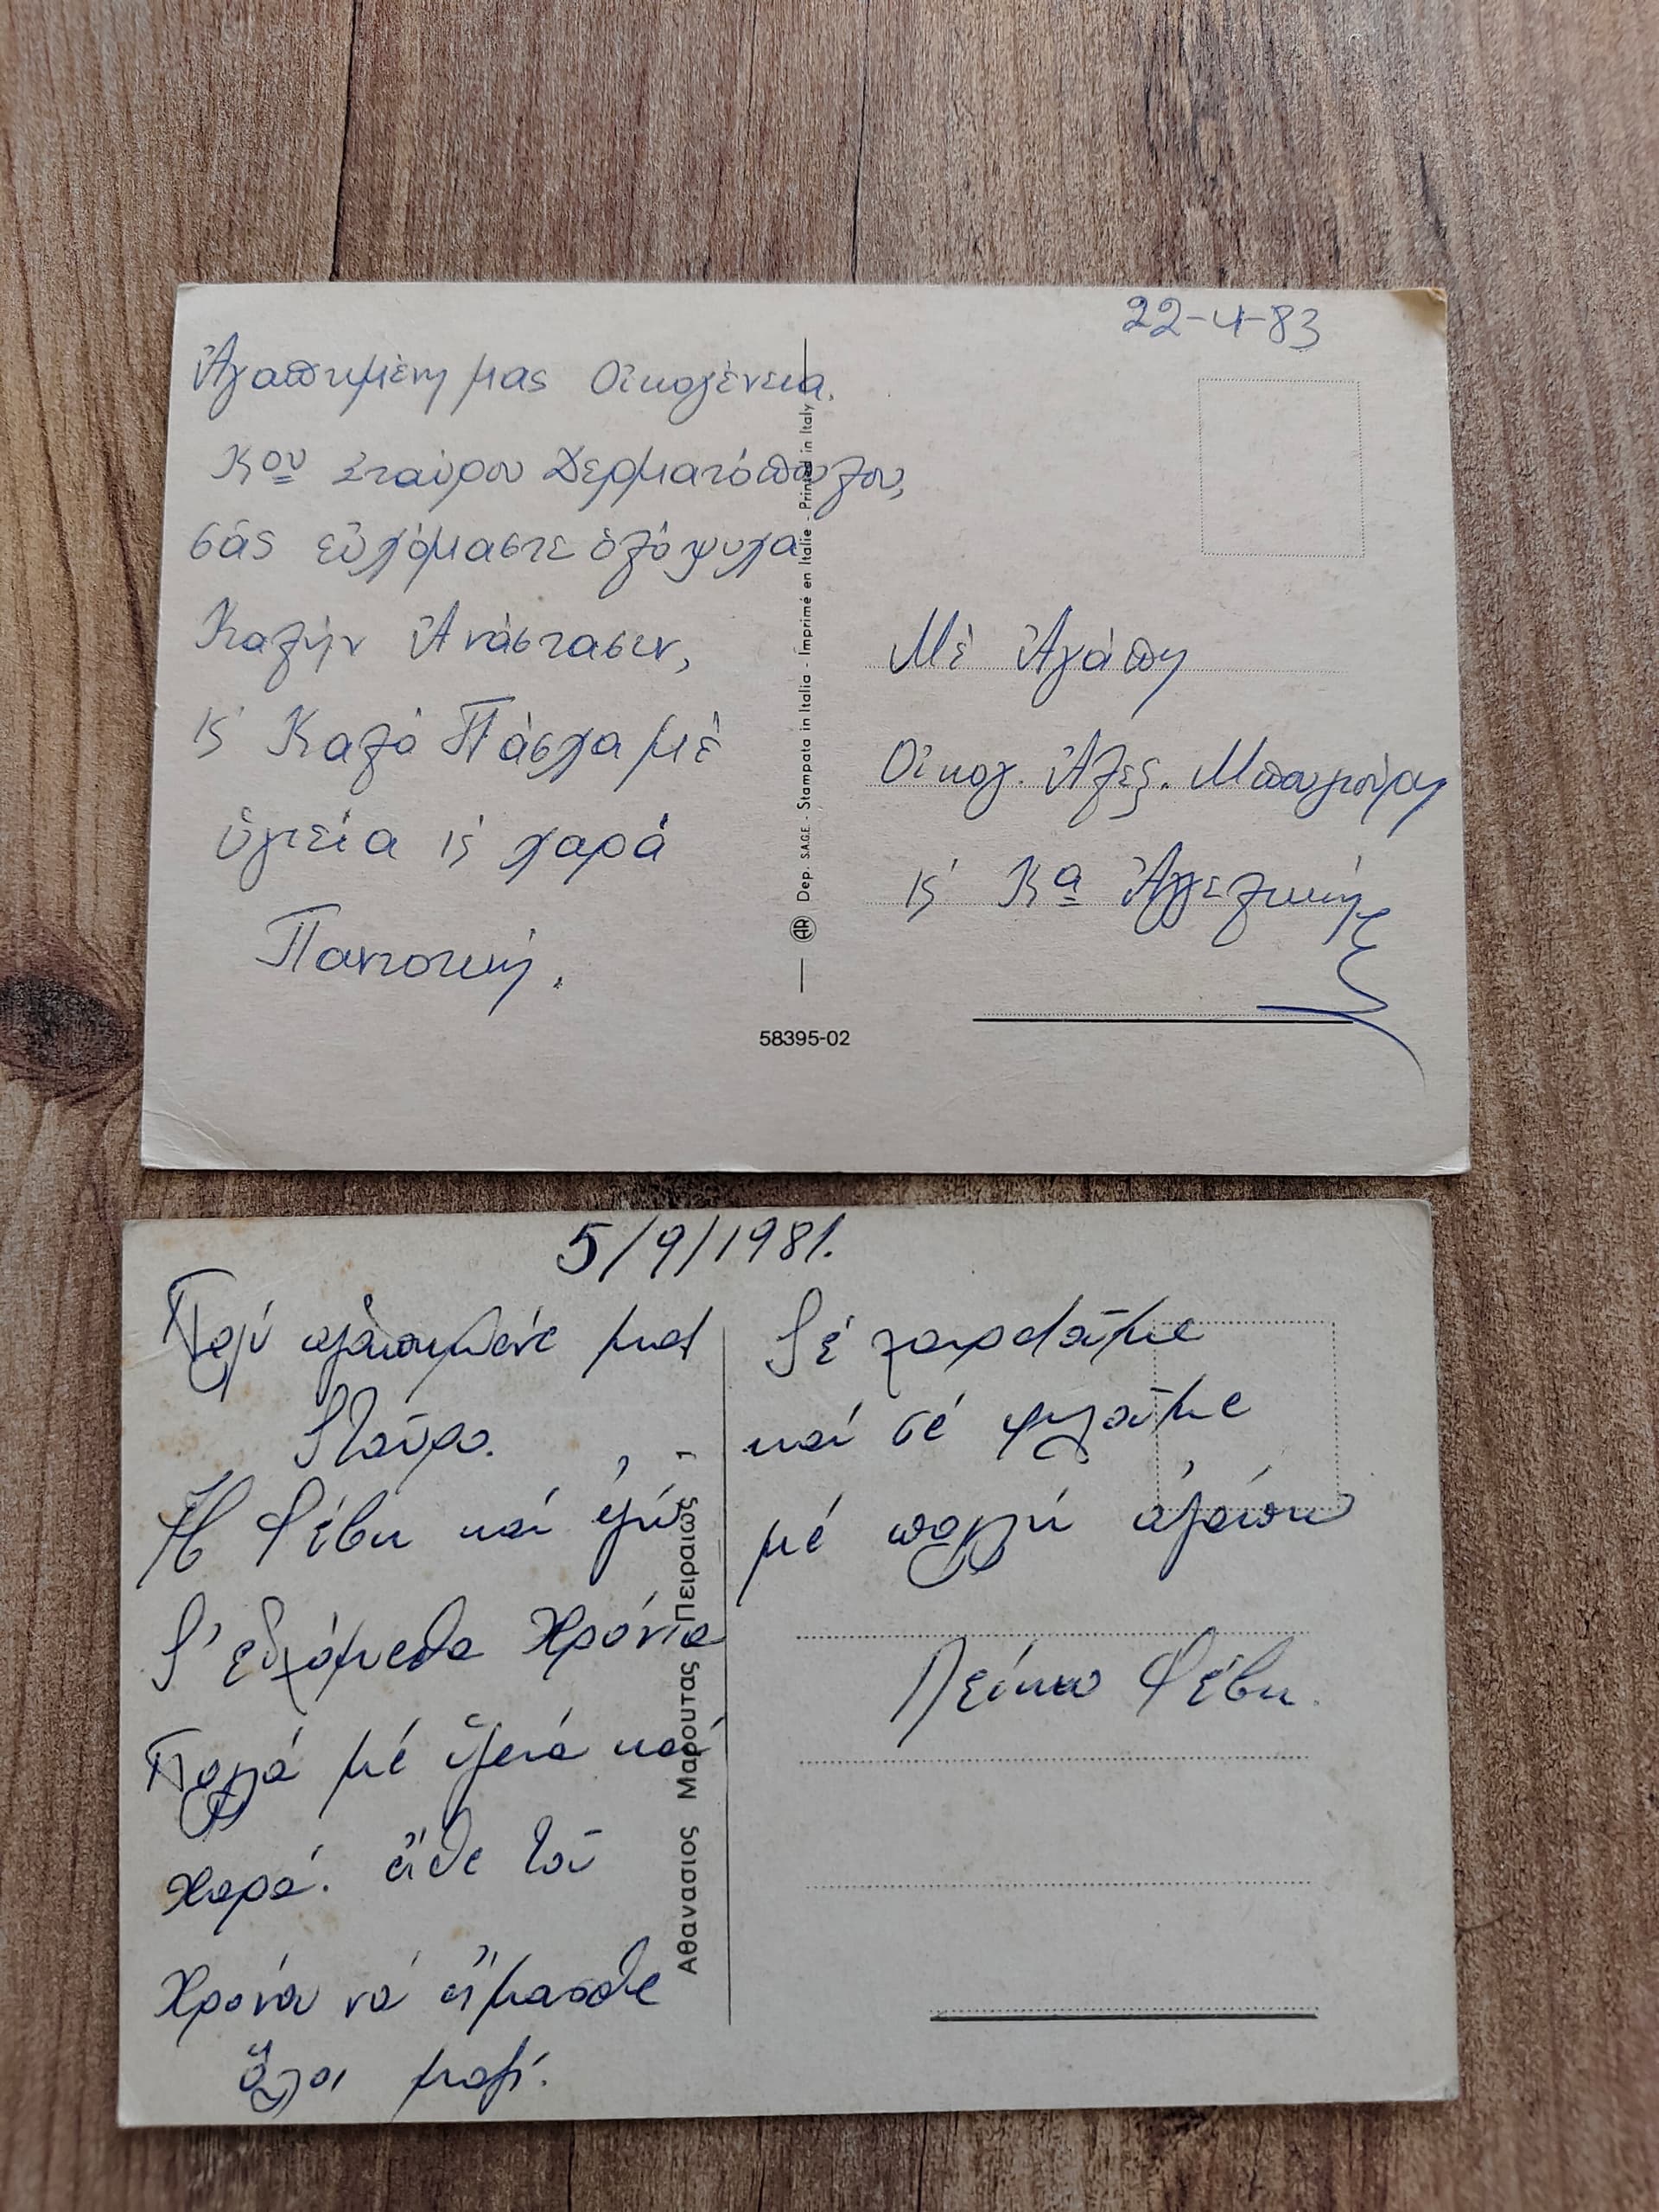 22-4-83
Ἀγαπημένη μας Οἰκογένεια.
Κου Σταύρου Δερματόπουλου,
σᾶς εὐχόμαστε ὁλόψυχα
Καλήν Ἀνάστασιν,
κ' Καλό Πάσχα μέ
ὑγιεία κ' χαρά
Παντοτινή.
Μέ Ἀγάπη
Οἰκογ. Ἀλεξ.
κ' Κα Ἀγγελική
Dep. S.A.G.E. - Stampata in Italia - Imprimé en Italie - Printed in Italy
AR
58395-02
5/9/1981.
Πολύ ἀγαπημένε μας
Σταῦρο.
Ἡ Φέβη καί ἐγώ
σ' εὐχόμεθα Χρόνια
Πολλά μέ ὑγειά καί
Χαρά. εἴθε τοῦ
Χρόνου νά εἴμασθε
ὅλοι μαζί.
Σέ χαιρετᾶμε
καί σέ φιλοῦμε
μέ πολλή ἀγάπη
Φέβη.
Αθανασιος Μαρουτας Πειραιως 1